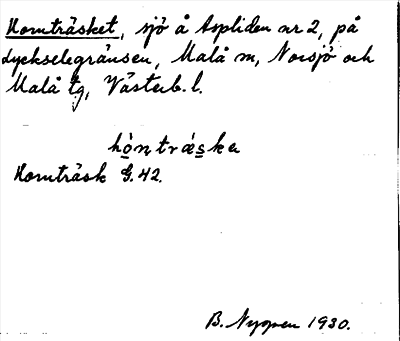 Hornträsket, sjö å Aspliden nr 2, på
Lyckselegränsen, Malå m, Norsjö och
Malå tg, Västerb. l.
hòntrǽska
Hornträsk G. 42.
B. Nygren 1930.